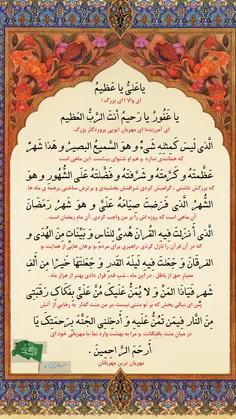 یا عَلیُّ یا عَظیمُ
ای والا ! ای بزرگ !
یا غَفُورُ یا رَحیمُ اَنتَ الرَّبُّ العَظیم
ای آمرزنده! ای مهربان !تویی پروردگار بزرگ،
الَّذی لَیسَ کَمِثلِهِ شَیءٌ و هوَ السَّمیعُ البَصیرُ و هَذا شَهرٌ
که همانندی ندارد .و هم او شنوای بیناست .این ماهی است
عَظَّمتَهُ و کَرَّمتَهُ و شَرَّفتَهُ و فَضَّلتَهُ عَلَی الشُّهُورِ و هوَ
که بزرگش داشتی . گرامیش کردی شرافتش بخشیدی و برترش ساختی برهمه ی ماه ها
الشَّهرُ الَّذی فَرَضتَ صِیامَهُ عَلَیَّ و هوَ شَهرُ رَمَضانَ
آن ماهی است که روزه اش را بر من واجب کردی .آن ماه رمضان است .
الَّذی اَنزَلتَ فیهِ القُرآنَ هُدیً لِلنّاسِ و بَیِّناتٍ مِنَ الهُدَی و
که در آن قرآن را نازل کردی .راهبری برای مردم .و برهان هایی از هدایت .و
الفُرقانَ و جَعَلتَ فیهِ لَیلَهَ القَدرِ و جَعَلتَها خَیراً مِن اَلفِ
معیار حق از باطل . در این ماه ، شب قدر قرار دادی بهتر از هزار ماه .
شَهرٍ فَیَاذَا المَنِّ وَ لا یُمَنُّ عَلَیکَ مُنَّ عَلَیَّ بِفَکاکِ رَقَبَتی
پس ای نیکی بخش که بر تو منتی نیست بر من منت گذار به رهایی از آتش
مِنَ النّارِ فیمَن تَمُنُّ عَلَیهِ وَ اَدخِلنِی الجَنَّةَ بِرَحمَتِکَ یا
در میان منت یافتگانت .و مرا به بهشت وارد نما. با مهربانی خود ای
اَرحَمَ الرّاحِمینَ .
مهربان ترین مهربانان